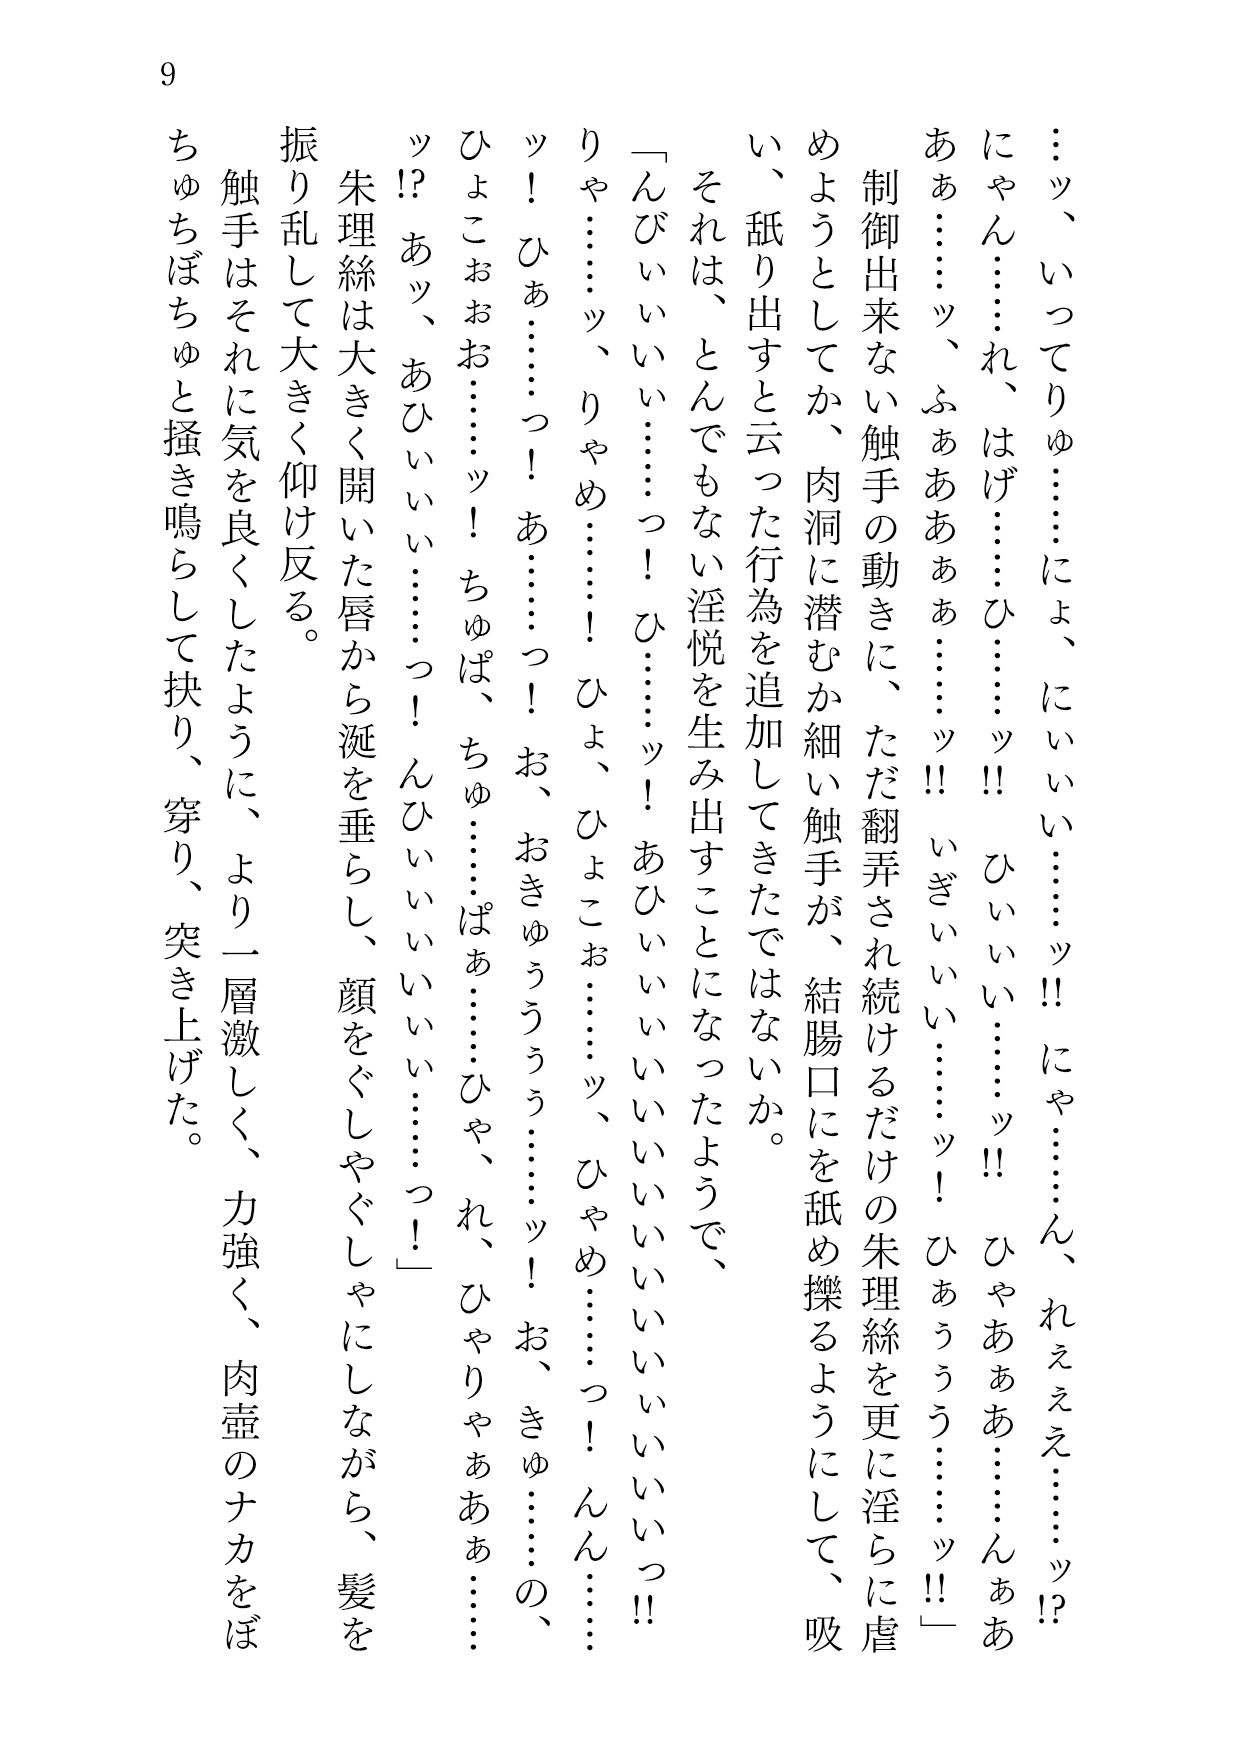 9
…ッ、いってりゅ……にょ、にぃぃい……ッ!! にゃ……ん、れぇぇえ……ッ!?
にゃん……れ、はげ……ひ……ッ!! ひぃぃい……ッ!! ひゃあぁあ……んぁあ
あぁ……ッ、ふぁああぁぁ……ッ!! いぎぃぃい……ッ! ひぁぅぅう……ッ!!」
　制御出来ない触手の動きに、ただ翻弄され続けるだけの朱理絲を更に淫らに虐
めようとしてか、肉洞に潜むか細い触手が、結腸口にを舐め擽るようにして、吸
い、舐り出すと云った行為を追加してきたではないか。
　それは、とんでもない淫悦を生み出すことになったようで、
「んびぃぃいぃ……っ! ひ……ッ! あひぃぃぃいいいいいいいいぃいいいっ!!
りゃ……ッ、りゃめ……! ひょ、ひょこぉ……ッ、ひゃめ……っ! んん……
ッ! ひぁ……っ! あ……っ! お、おきゅぅうぅぅ……ッ! お、きゅ……の、
ひょこぉぉお……ッ! ちゅぱ、ちゅ……ぱぁ……ひゃ、れ、ひゃりゃぁあぁ……
ッ!? あッ、あひぃぃい……っ! んひぃぃぃいぃい……っ!」
　朱理絲は大きく開いた唇から涎を垂らし、顔をぐしやぐしゃにしながら、髪を
振り乱して大きく仰け反る。
　触手はそれに気を良くしたように、より一層激しく、力強く、肉壺のナカをぼ
ちゅちぼちゅと掻き鳴らして抉り、穿り、突き上げた。